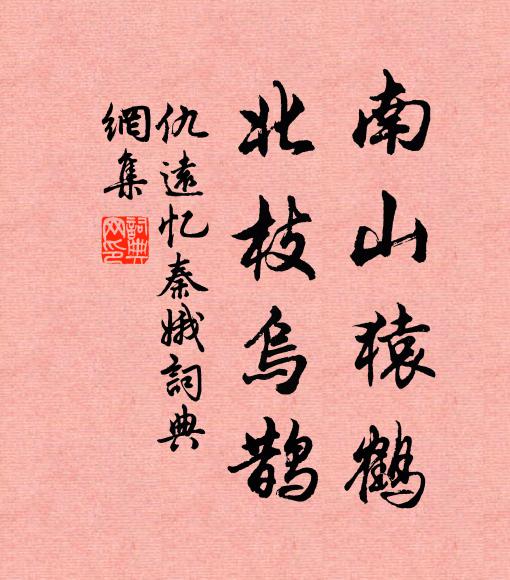 南山猿鶴
北枝烏鵲
仇遠忆秦娥詞典
網集
詞典網印